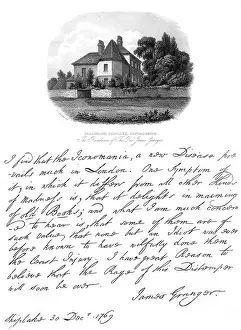 The Residence of the Revd. James Granger.
I find that the Iconomania, a new Disease pre-
vails much in London. One Symptom of
it, in which it differs from all other Kinds
of Madness is, that it delights in maiming
of old Books; and what I am much concern
'd to hear is, that some of them are of
such value, that none but an Idiot was ever
before known to have wilfully done them
the least Injury. I have great Reason to
believe that the Rage of this Distemper
will soon be over.
James Granger.
Shiplake 30 Decr. 1769